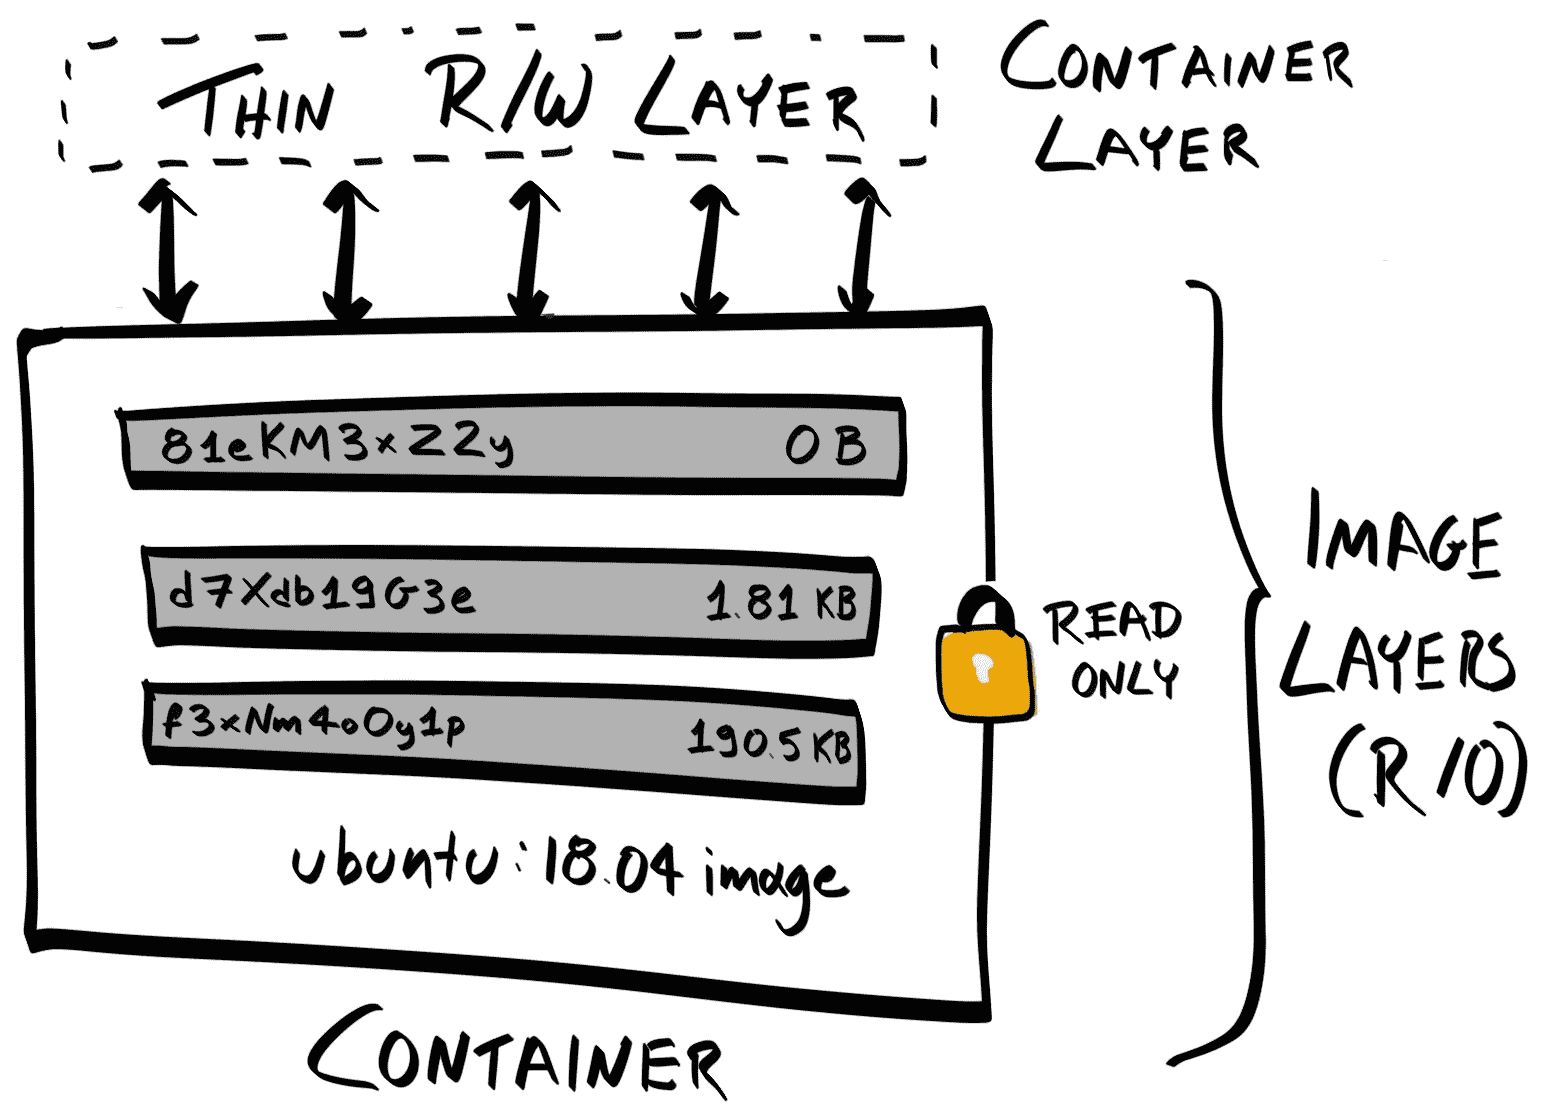 THIN R/W LAYER
CONTAINER
LAYER
81eKM3xZ2y 0 B
d7Xdb19G3e 1.81 KB
f3xNm4o0y1p 190.5 KB
ubuntu:18.04 image
READ
ONLY
IMAGE
LAYERS
(R/O)
CONTAINER